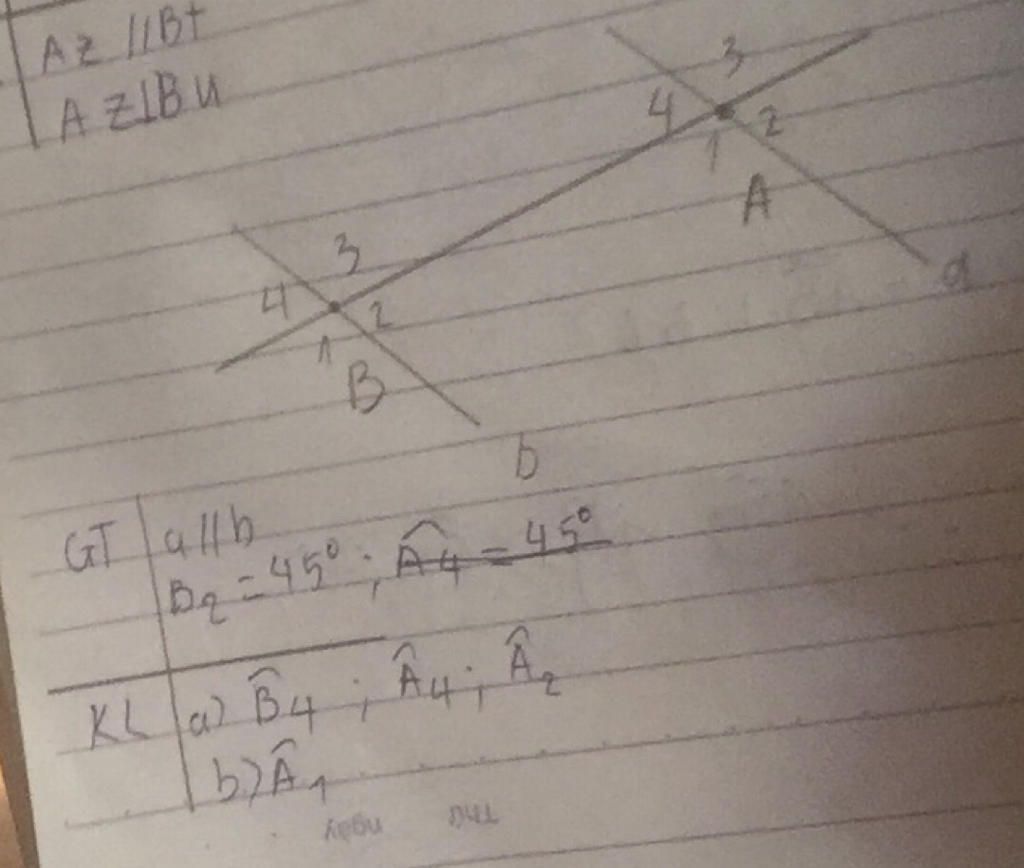 Az // Bt
Az ⊥ Bu
3
4 2
1
A
a
3
4 2
1
B
b
GT a // b
B₂ = 45°; Â₄ = 45°
KL a) B̂₄; Â₄; Â₂
b) Â₁